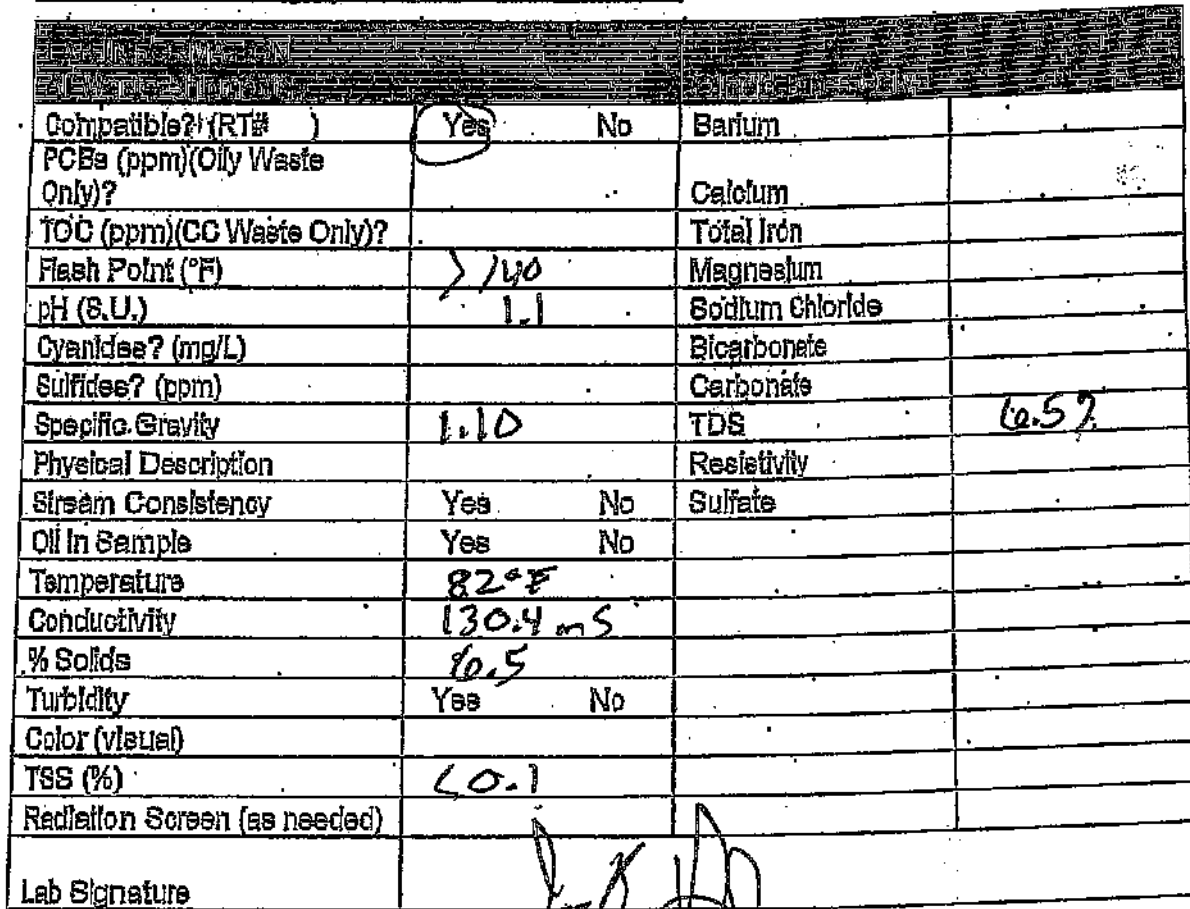 Compatible? (RT# ) Yes No Barium
PCBs (ppm)(Oily Waste
Only)? Calcium
TOC (ppm)(CC Waste Only)? Total Iron
Flash Point (°F) >140 Magnesium
pH (S.U.) 1.1 Sodium Chloride
Cyanides? (mg/L) Bicarbonate
Sulfides? (ppm) Carbonate
Specific Gravity 1.10 TDS 6.5%
Physical Description Resistivity
Stream Consistency Yes No Sulfate
Oil in Sample Yes No
Temperature 82°F
Conductivity 130.4 mS
% Solids 6.5
Turbidity Yes No
Color (visual)
TSS (%) <0.1
Radiation Screen (as needed)
Lab Signature